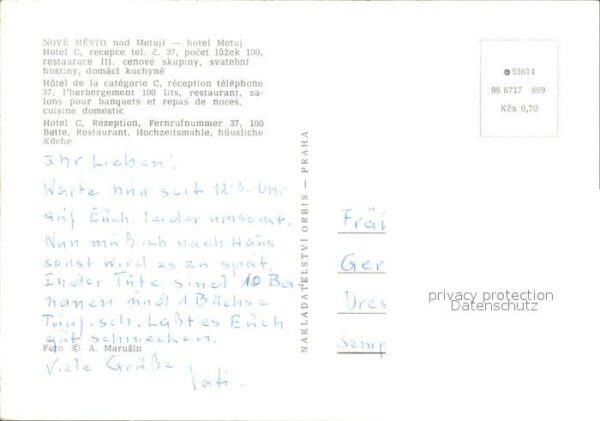 NOVÉ MĚSTO nad Metují — hotel Metuj
Hotel C, recepce tel. č. 37, počet lůžek 100,
restaurace III. cenové skupiny, svatební
hostiny, domácí kuchyně
Hôtel de la catégorie C, réception téléphone
37, l'herbergement 100 lits, restaurant, sa-
lons pour banquets et repas de noces,
cuisine domestic
Hotel C, Rezeption, Fernrufnummer 37, 100
Bette, Restaurant, Hochzeitsmahle, häusliche
Küche
Ihr Lieben!
Warte nun seit 12.30 Uhr
auf Euch, leider umsonst.
Nun muß ich nach Haus
sonst wird es zu spät.
In der Tüte sind 10 Ba-
nanen und 1 Büchse
Tunf.sch. Laßt es Euch
gut schmecken.
Foto © A. Marušin
Viele Grüße
NAKLADATELSTVÍ ORBIS — PRAHA
53614
96 6717 869
Kčs 0,70
Fräi
Ger
Dres
Semp
privacy protection
Datenschutz